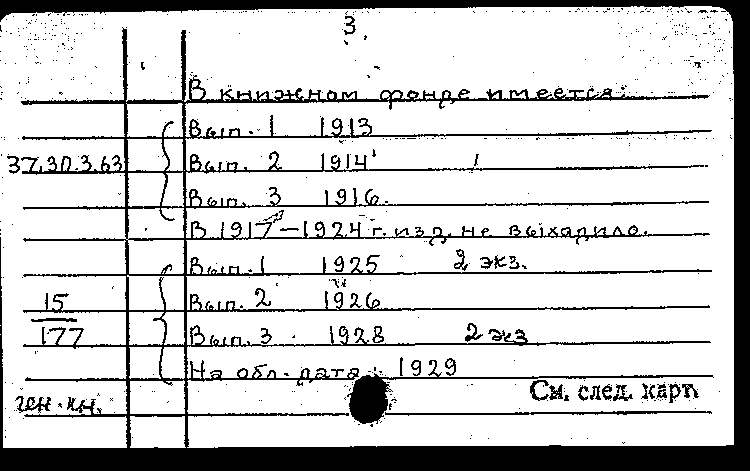 3.
В книжном фонде имеется:
Вып. 1 1913
37.30.3.63 Вып. 2 1914
Вып. 3 1916.
В 1917—1924 г. изд. не выходило.
Вып. 1 1925 2 экз.
15 Вып. 2 1926
177 Вып. 3 1928 2 экз
На обл. дата: 1929
См. след. карт.
ген. кн.